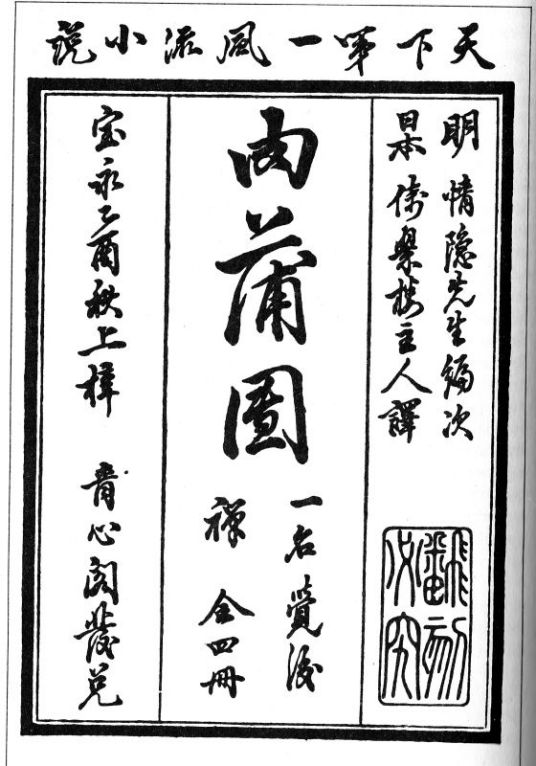 天下第一風流小説
明 情隠先生編次
日本 倚翠楼主人譯
翻刻必究
肉蒲團
一名覺後
禅 全四冊
宝永乙酉秋上梓 青心閣發兌